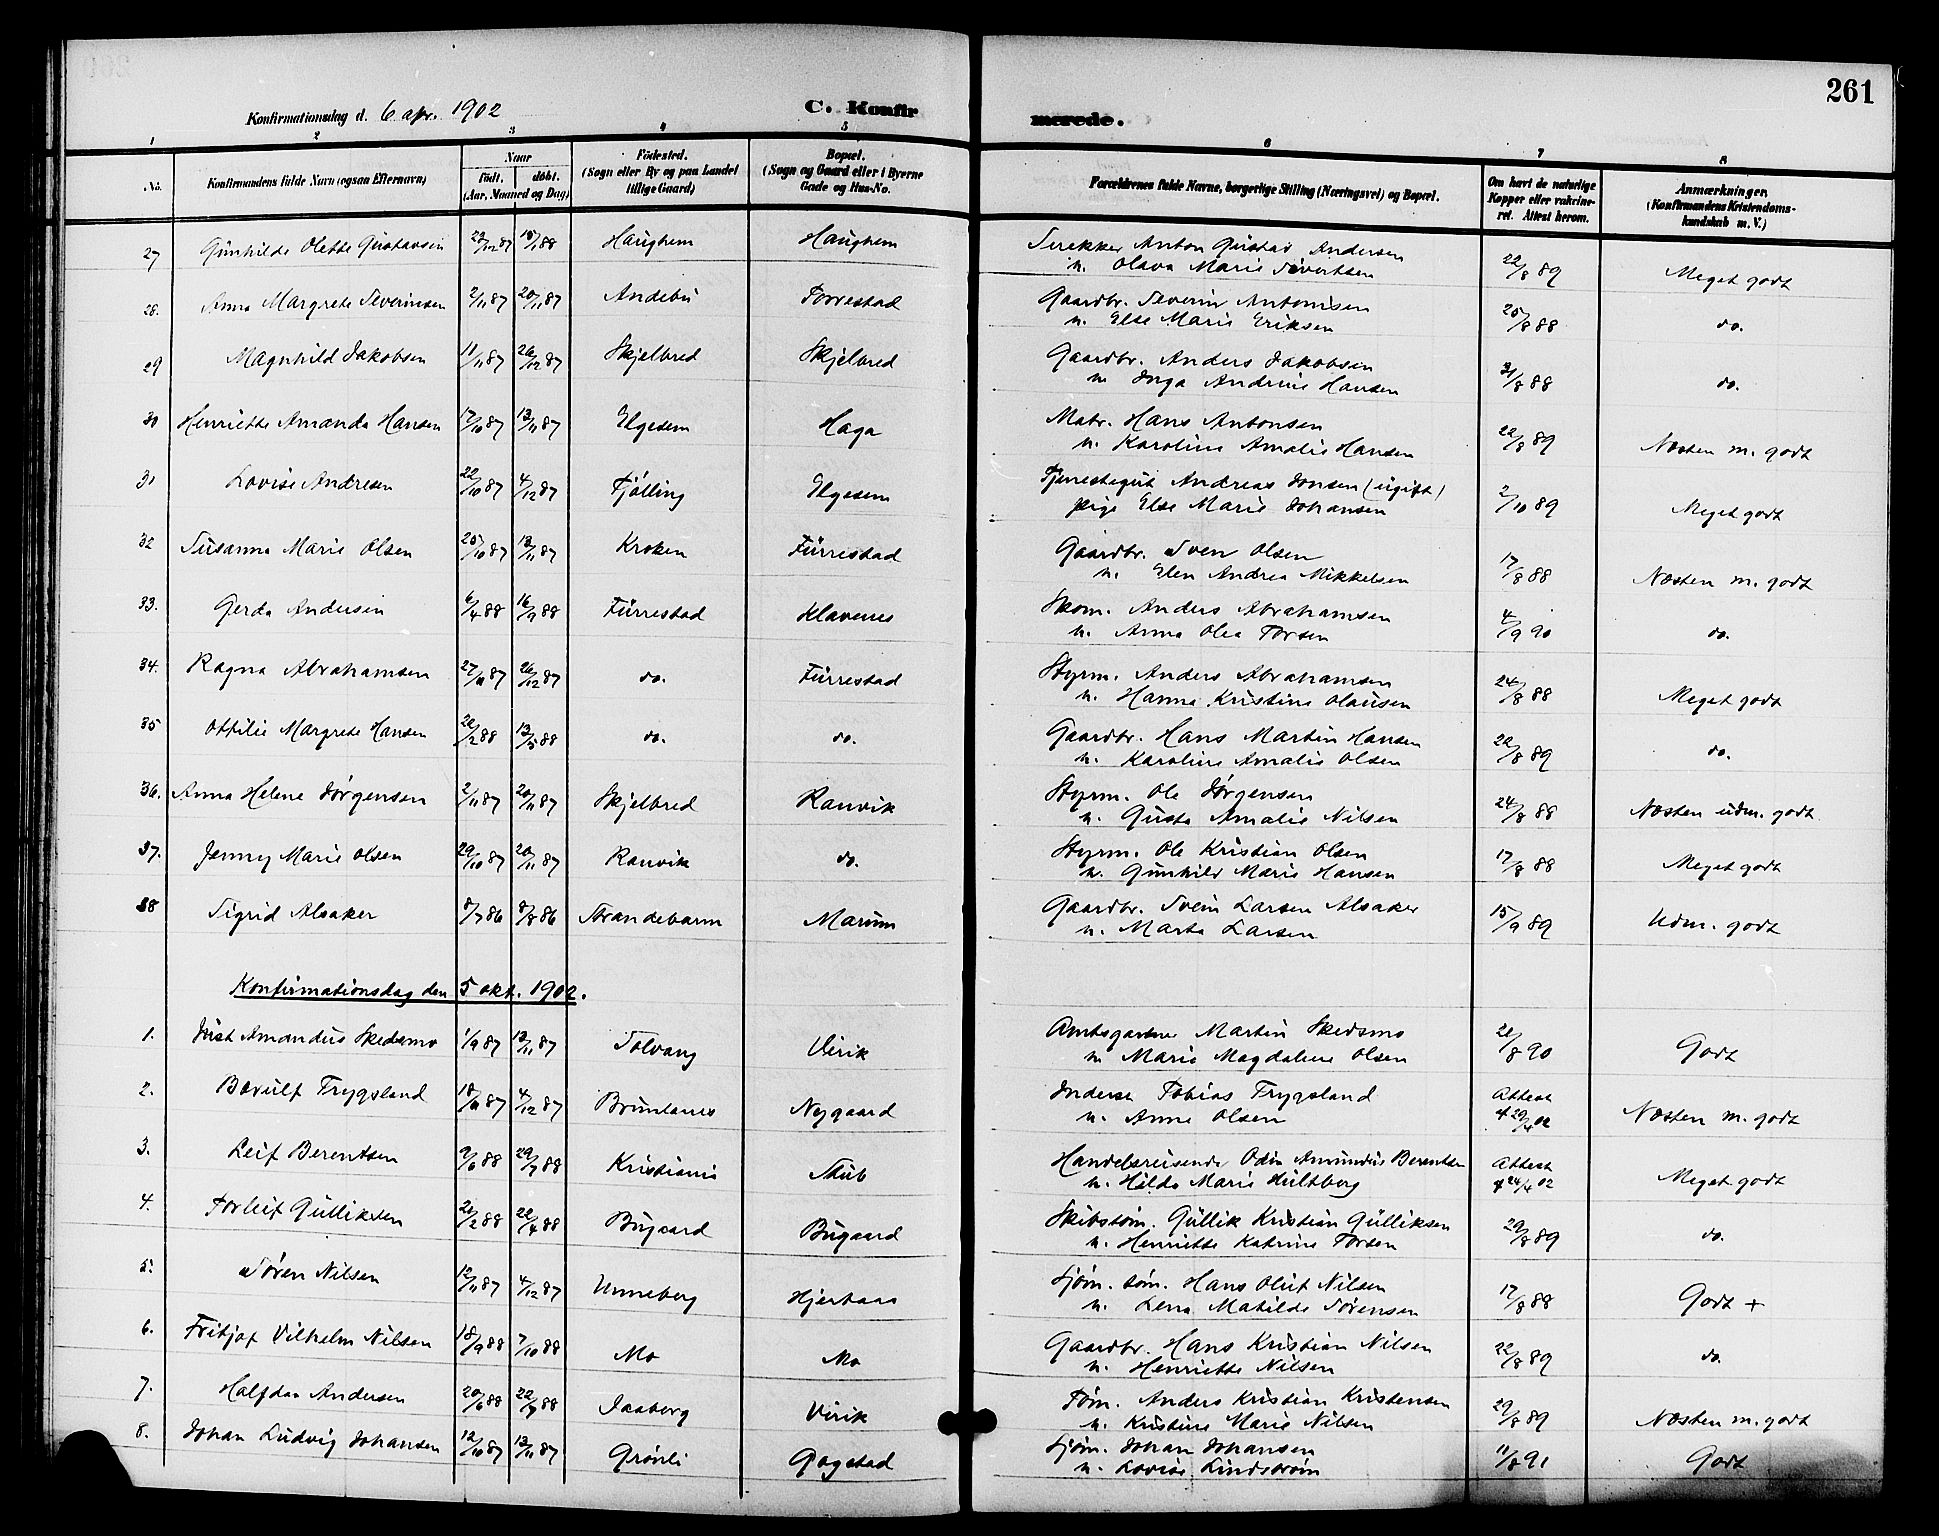 261
Konfirmationsdag d. 6 apr. 1902
C. Konfirmerede.
1 2 3 4 5 6 7 8
No. Konfirmandens fulde Navn (ogsaa Efternavn) Naar født. døbt. (Aar, Maaned og Dag) Fødested. (Sogn eller By og paa Landet tillige Gaard) Bopæl. (Sogn og Gaard eller i Byerne Gade og Hus-No. Forældrenes fulde Navne, borgerlige Stilling (Næringsvei) og Bopæl. Om havt de naturlige Kopper eller vakcineret. Attest herom. Anmærkninger. (Konfirmandens Kristendomskundskab m. V.)
27 Gunhilde Olette Gustavsen 29/12 87 15/1 88 Haughem Haughem Snekker Anton Gustav Andersen 22/8 89 Meget godt
u. Olava Marie Sivertsen
28. Anna Margrete Severinsen 2/11 87 20/11 87 Andebu Torrestad Gaardbr. Severin Antonisen 25/8 88 do.
u. Else Marie Eriksen
29 Magnhild Jakobsen 11/11 87 26/12 87 Skjelbred Skjelbred Gaardbr. Anders Jakobsen 31/8 88 do.
u. Inga Andrine Hansen
30 Henriette Amanda Hansen 17/10 87 13/11 87 Elgesem Haga Matr. Hans Antonsen 22/8 89 Næsten m. godt
u. Karoline Amalie Hansen
31 Lovise Andresen 22/10 87 4/12 87 Tjølling Elgesem Tjenestegut Andreas Jonsen (ugift) 2/10 89 Meget godt
pige Else Marie Johansen
32 Susanna Marie Olsen 25/10 87 13/11 87 Kroken Furrestad Gaardbr. Sven Olsen 17/8 88 Næsten m. godt
u. Elen Andrea Mikkelsen
33. Gerda Andersen 6/4 88 16/9 88 Furrestad Klavenes Skom. Anders Abrahamsen 4/9 90 do.
u. Anna Olea Torsen
34. Ragna Abrahamsen 27/11 87 26/12 87 do. Furrestad Styrm. Anders Abrahamsen 24/8 88 Meget godt
u. Hanna Kristine Olausen
35 Ottilie Margrete Hansen 20/2 88 13/5 88 do. do. Gaardbr. Hans Martin Hansen 22/8 89 do.
u. Karoline Amalie Olsen
36. Anna Helene Jørgensen 2/11 87 20/11 87 Skjelbred Ranvik Styrm. Ole Jørgensen 24/8 88 Næsten udm. godt
u. Gusta Amalie Nilsen
37. Jenny Marie Olsen 29/10 87 20/11 87 Ranvik do. Styrm. Ole Kristian Olsen 17/8 88 Meget godt
u. Gunhild Marie Hansen
38 Sigrid Alsaker 8/7 86 8/8 86 Strandebarm Marum Gaardbr. Svein Larsen Alsaker 15/9 89 Udm. godt
u. Marta Larsen
Konfirmationsdag den 5 okt. 1902.
1. Just Amandus Skedsmo 1/9 87 13/11 87 Solvang Virik Amtsgartner Martin Skedsmo 21/8 90 Godt
u. Marie Magdalene Olsen
2. Bervulf Trygsland 18/11 87 4/12 87 Bruntanes Nygaard Inderst Tobias Trygsland Attest Næsten m. godt
u. Anne Olsen 29/4 02
3. Leif Berentsen 9/6 88 29/7 88 Kristiania Stub Handelsreisende Odin Amundus Berentsen Attest Meget godt
u. Hilda Marie Hultberg 24/4 02
4. Torleif Gulliksen 21/2 88 22/4 88 Bugaard Bugaard Skibstøm. Gullik Kristian Gulliksen 29/8 89 do.
u. Henriette Katrine Torsen
5. Søren Nilsen 12/11 87 4/12 87 Unneberg Hjertaas Sjøm. tøm. Hans Oluf Nilsen 17/8 88 Godt +
u. Lena Matilde Sørensen
6. Fritjof Vilhelm Nilsen 18/9 88 7/10 88 Mo Mo Gaardbr. Hans Kristian Nilsen 22/8 89 do.
u. Henriette Nilsen
7. Halfdan Andersen 20/6 88 22/7 88 Jaaberg Virik Tøm. Anders Kristian Kristensen 29/8 89 Næsten m. godt
u. Kristine Marie Nilsen
8. Johan Ludvig Johansen 12/10 87 13/11 87 Grønli Gogstad Sjøm. Johan Johansen 11/8 91 Godt
u. Lovise Lindstrøm